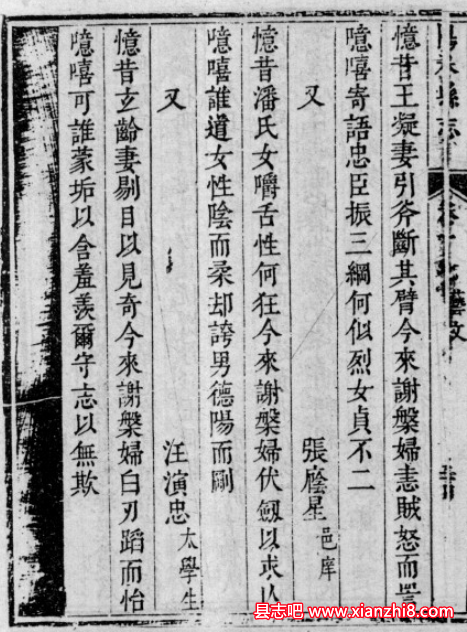 縣志
藝文
憶昔王凝妻引斧斷其臂今來謝槃婦恚賊怒而
噫嘻寄語忠臣振三綱何似烈女貞不二
又 張廕星邑庠
憶昔潘氏女嚼舌性何狂今來謝槃婦伏劒以求
噫嘻誰道女性陰而柔却誇男德陽而剛
又 汪演忠太學生
憶昔玄齡妻剔目以見奇今來謝槃婦白刃蹈而怡
噫嘻可誰蒙垢以含羞羨爾守志以無欺
县志吧 www.xianzhi8.com